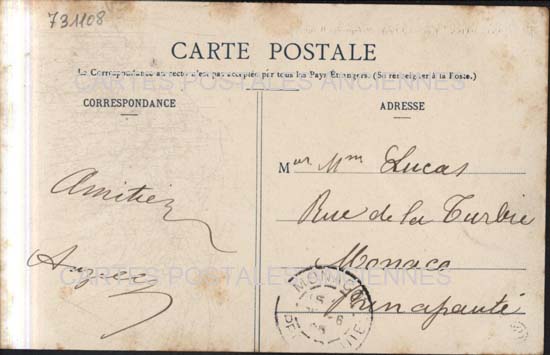 731108
CARTE POSTALE
La Correspondance au recto n'est pas acceptée par tous les Pays Étrangers. (Se renseigner à la Poste.)
CARTES POSTALES ANCIENNES
CORRESPONDANCE
ADRESSE
Mur Mm Lucas
Amitiés
Rue de la Turbie
Monaco
CARTES POSTALES ANCIENNES
MONACO
Principauté